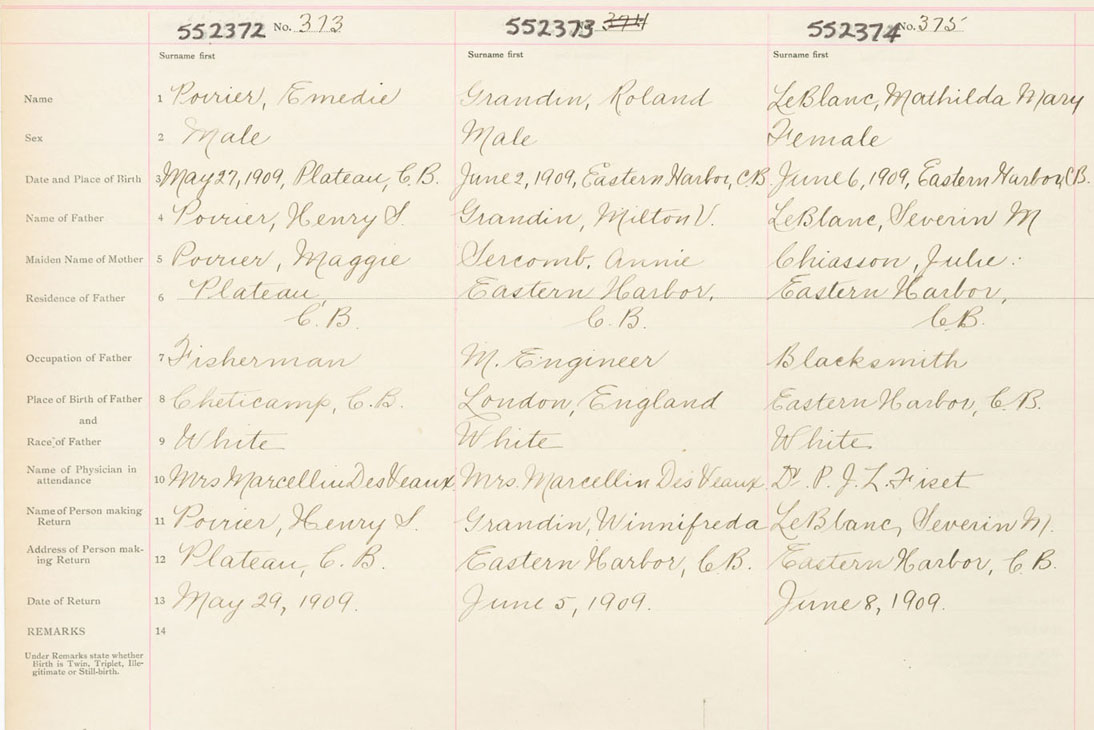 552372 No. 373 552373 374 552374 No. 375
Surname first Surname first Surname first
Name 1 Poirier, Emedie Grandin, Roland LeBlanc, Mathilda Mary
Sex 2 Male Male Female
Date and Place of Birth 3 May 27, 1909, Plateau, C.B. June 2, 1909, Eastern Harbor, C.B. June 6, 1909, Eastern Harbor, C.B.
Name of Father 4 Poirier, Henry S. Grandin, Milton V. LeBlanc, Severin M
Maiden Name of Mother 5 Poirier, Maggie Sercomb, Annie Chiasson, Julie.
Residence of Father 6 Plateau, Eastern Harbor, Eastern Harbor,
C.B. C.B. C.B.
Occupation of Father 7 Fisherman M. Engineer Blacksmith
Place of Birth of Father 8 Cheticamp, C.B. London, England Eastern Harbor, C.B.
and
Race of Father 9 White White White
Name of Physician in
attendance 10 Mrs Marcellin DesVeaux Mrs. Marcellin DesVeaux. Dr. P. J. L. Fiset
Name of Person making
Return 11 Poirier, Henry S. Grandin, Winnifreda LeBlanc, Severin M.
Address of Person mak-
ing Return 12 Plateau, C.B. Eastern Harbor, C.B. Eastern Harbor, C.B.
Date of Return 13 May 29, 1909. June 5, 1909. June 8, 1909.
REMARKS 14
Under Remarks state whether
Birth is Twin, Triplet, Ille-
gitimate or Still-birth.